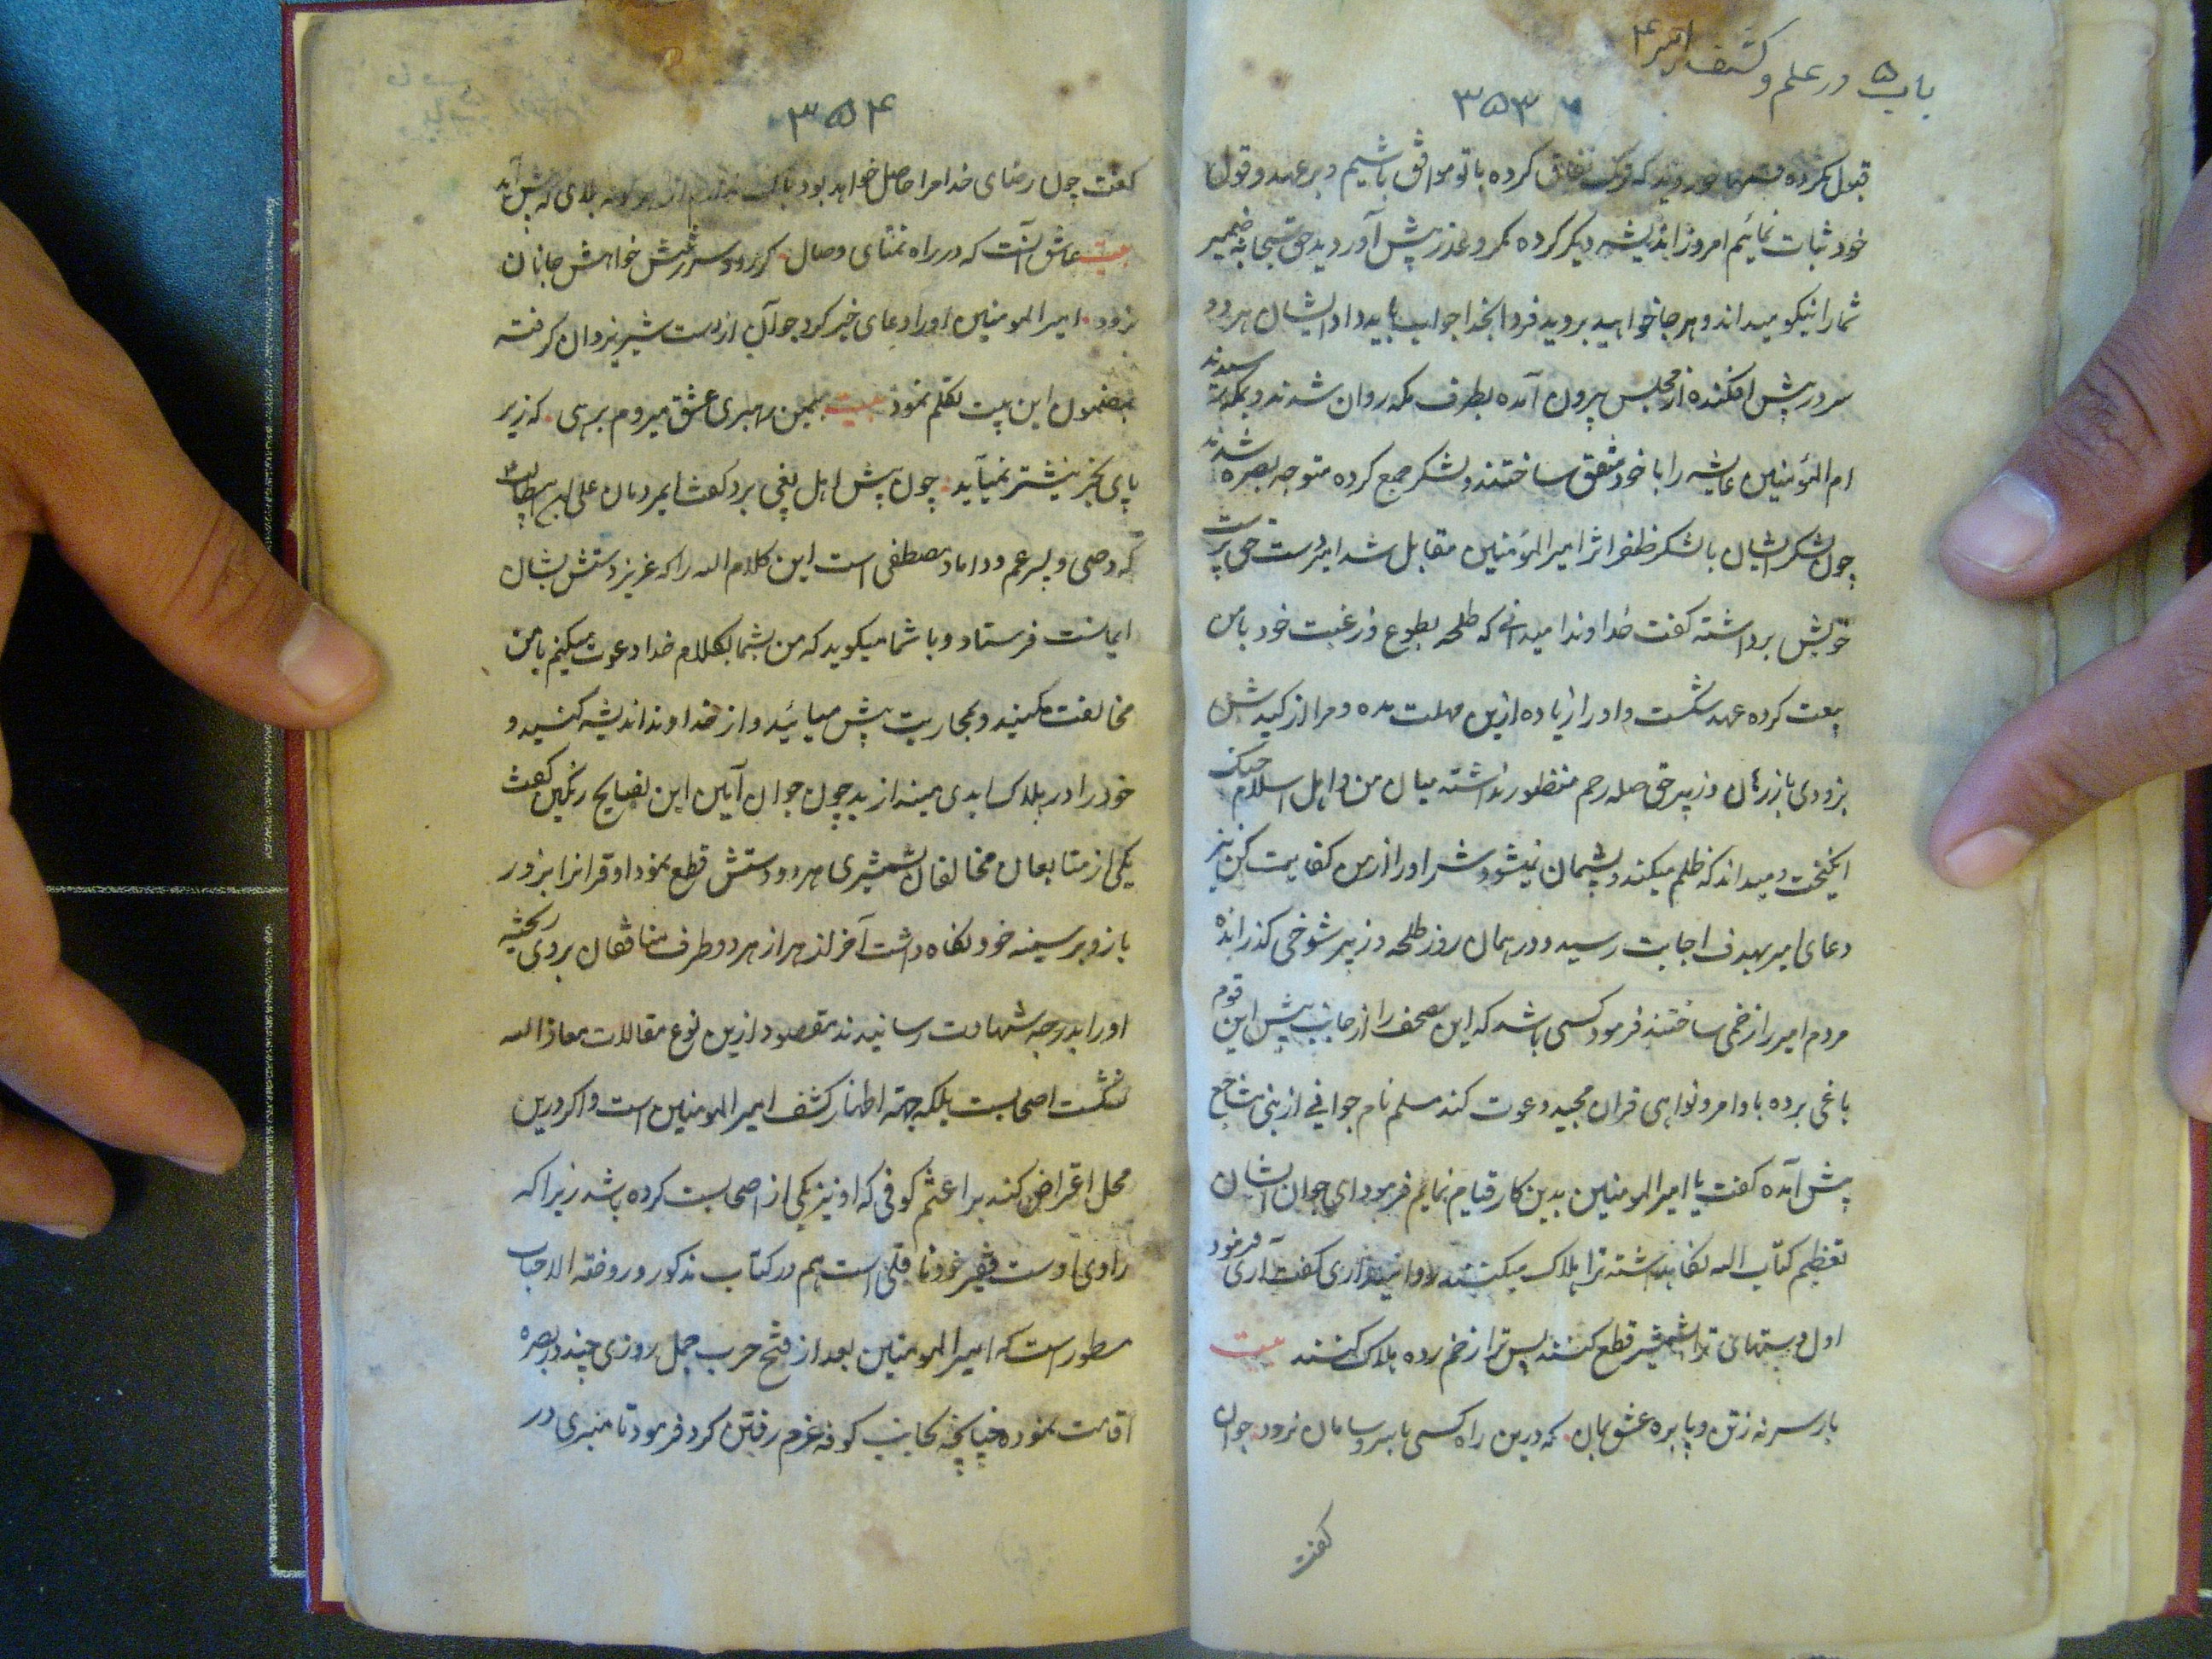 باب ۵ در علم و کشف امیر ۴
۳۵۳
قبول نکرده قسمها خوردید که ترک نفاق کرده با تو موافق باشیم و بر عهد و قول
خود ثبات نمائیم امروز اندیشه دیگر کرده مکر و عذر پیش آوردید حق سبحانه ضمیر
شما را نیکو میداند و هر جا خواهید بروید فردا بخدا جواب باید داد ایشان هر دو
سر در پیش افکنده از مجلس بیرون آمده بطرف مکه روان شدند و بمکه رسیدند
ام المؤمنین عایشه را با خود متفق ساختند و لشکر جمع کرده متوجه بصره شدند
چون لشکر ایشان با لشکر ظفر اثر امیر المؤمنین مقابل شد امیر دست حق پرست
خویش برداشته کفت خداوندا میدانی که طلحه بطوع و رغبت خود با من
بیعت کرده عهد شکست و او را زیاده ازین مهلت مده و مرا از کید شن
بزودی باز رهان و زبیر حق صله رحم منظور نداشته میان من و اهل اسلام جنک
انکیخت و میداند که ظلم میکند و پشیمان نمیشود شر او را از من کفایت کن نیز
دعای امیر بهدف اجابت رسید و در همان روز طلحه و زبیر شوخی کذرانده
مردم امیر را زخمی ساختند فرمود کسی باشد که این مصحف را از جانب پیش این قوم
باغی برده باوامر و نواهی قران مجید دعوت کند مسلم نام جوانی از بنی شاجع
پیش آمده کفت یا امیر المومنین بدین کار قیام نمایم فرمود ای جوان ایشان
تعظیم کتاب الله نکاه نداشته ترا هلاک میکنند روا میداری کفت آری فرمود
اول دستهای ترا بشمشیر قطع کنند پس ترا زخم زده هلاک کنند بیت
بار سر نه ز تن و پا بره عشق بمان که درین راه کسی با سر و سامان نرود جوان
کفت
۳۵۴
کفت چون رضای خدا مرا حاصل خواهد بود باک ندارم از هر کونه بلای که پیش آید
بیت عاشق آنست که در راه تمنای وصال کر رود سر ز سرش خواهش جانان
نرود امیر المومنین او را دعای خیر کرد جوان از دست شیر یزدان کرفته
بمضمون این بیت تکلم نمود بیت بیمن رهبری عشق میروم برهی که زیر
پای بجز نیشتر نمیآید چون پیش اهل بغی برد کفت ایمردمان علی ابن ابیطالب
که وصی و پسر عم و داماد مصطفی است این کلام الله را که عزیز دستش بشان
ایمانست فرستاد و با شما میکوید که من شما بکلام خدا دعوت میکنم با من
مخالفت مکنید و بمحاربت پیش میائید و از خداوند اندیشه کنید و
خود را در هلاک ابدی میندازید چون جوان آیین این نصایح رنکین کفت
یکی از متابعان مخالفان بشمشیری هر دو دستش قطع نمود او قرانرا بزور
بازو بر سینه خود نکاه داشت آخر الامر از هر دو طرف منافقان بر وی ریخته
او را بدرجه شهادت رسانیدند مقصود ازین نوع مقالات معاذ الله
شکست اصحابست بلکه جهة اظهار کشف امیر المومنین است و اکر درین
محل اعتراض کند بر اعثم کوفی که او نیز یکی از اصحابست کرده باشد زیرا که
راوی اوست فقیر خود ناقلی است هم در کتاب مذکور و روضة الاحباب
مسطور است که امیر المومنین بعد از فتح حرب جمل روزی چند در بصره
اقامت نموده چنانچه بجانب کوفه عزم رفتن کرد فرمود تا منبری در